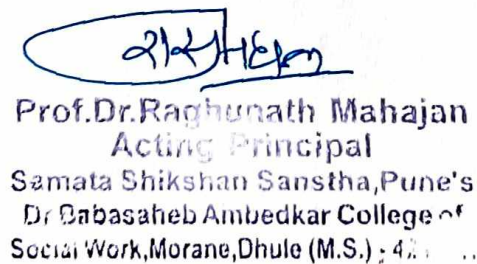 Prof.Dr.Raghunath Mahajan
Acting Principal
Samata Shikshan Sanstha,Pune's
Dr Babasaheb Ambedkar College of
Social Work,Morane,Dhule (M.S.)